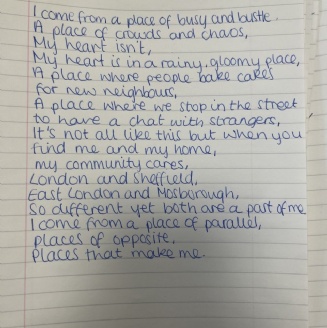 I come from a place of busy and bustle.
A place of crowds and chaos,
My heart isn't,
My heart is in a rainy, gloomy place,
A place where people bake cakes
for new neighbours,
A place where we stop in the street
to have a chat with strangers,
It's not all like this but when you
find me and my home,
my community cares,
London and Sheffield,
East London and Mosborough,
So different yet both are a part of me
I come from a place of parallel,
places of opposite,
places that make me.